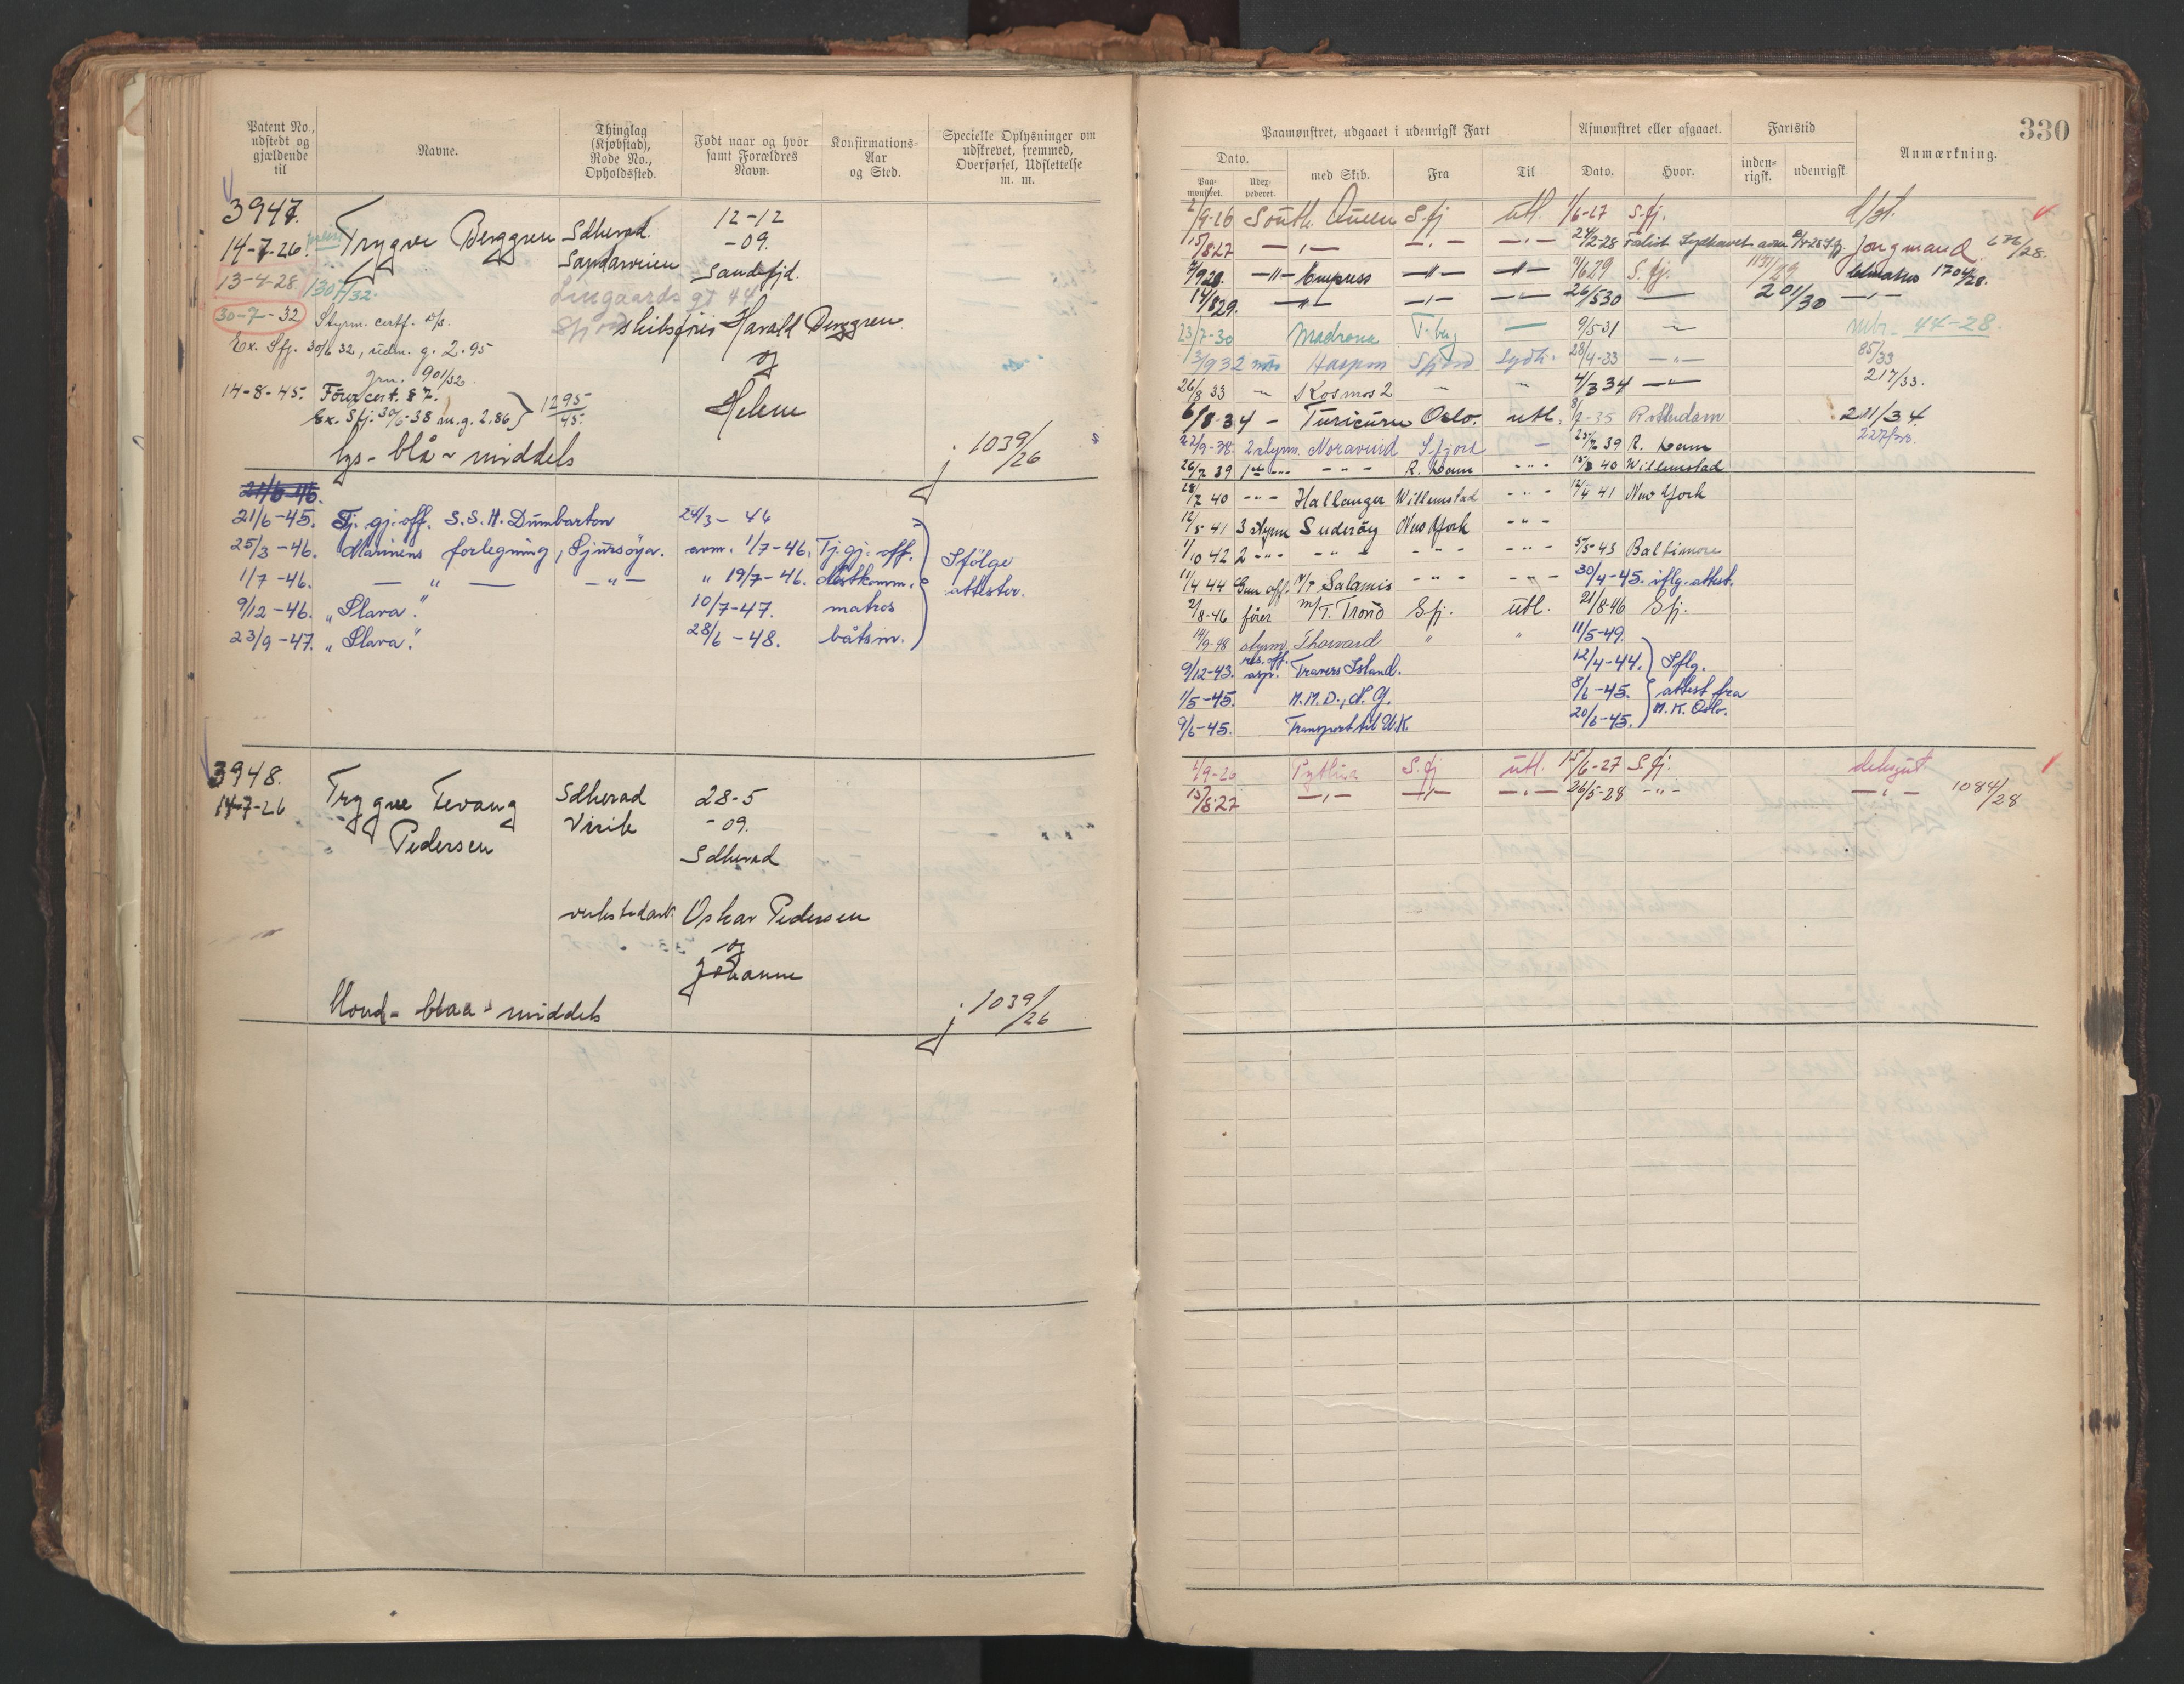 Patent No., udstedt og gjældende til
Navne.
Thinglag (Kjøbstad), Rode No., Opholdssted.
Født naar og hvor samt Forældres Navn.
Konfirmations-Aar og Sted.
Specielle Oplysninger om udskrevet, fremmed, Overførsel, Udslettelse m. m.
3947.
14-7-26.
13-4-28
30-7-32
1307/32.
Trygve Berggren
Sdherad.
Sandarveien
Lingaards gt 44
12-12
-09.
Sandefjd.
Styrm. certf.
Ex. Sfj. 30/6 32, udm. g. 2.95
Jrn. 901/32
skibsfører Harald Berggren
og
Helene
14-8-45. Förercert. § 7.
Ex. Sfj. 30/6-38 m.g. 2.86 } 1295/45.
lys - blå - middels
j 1039/26
21/6-46.
21/6-45. Tj. gj. off. S.S.H. Dumbarton 24/3-46
25/3-46. Marinens forlegning, Sjursøya. avm. 1/7-46, Tj. gj. off.
1/7-46. — " — — " — " 19/7-46. Nestkomm.
Ifölge attester.
9/12-46. "Slava". 10/7-47. matros
23/9-47. "Slava". 28/6-48. båtsm.
3948.
14-7-26
Trygve Tevang Pedersen
Sdherad
Virik
28-5
-09.
Sdherad
verkstedarb. Oskar Pedersen
og
Johanne
blond - blaa - middels
j 1039/26
330
Paamønstret, udgaaet i udenrigsk Fart
Afmønstret eller afgaaet.
Fartstid
Anmærkning.
Dato.
Paa-mønstret.
Udex-pederet.
med Skib.
Fra
Til
Dato.
Hvor.
inden-rigsk.
udenrigsk
2/9-26 South. Queen S.fj utl. 1/6-27 S.fj.
15/8 27 — " — — " — — " — 24/2-28 Forlist Sydhavet Jungmand 676/28.
7/9 28. — " — Empress — " — — " — 11/6 29 S.fj. 1704/28.
14/8 29. — " — — " — — " — 26/5 30 — 201/30 — " —
23/7-30 Madrona T.berg — 9/5-31 — " — 44-28.
13/9 32 Haspom Sfjord Sydh. 28/4-33 — " — 85/33
26/8 33 " Kosmos 2 " " 4/3 34 — " — 217/33.
6/8-34 - Turicum Oslo. utl. 8/7-35 Rotterdam 221/34.
22/9-38. 2 styrm. Noravind S.fjord — 25/2 39 R. dam 227/38.
26/2 39 1st " - " - R. dam - " - 15/3 40 Willemstad
28/7 40 - " - Hallanger Willemstad - " - 12/4 41 New York
12/5-41 3 styrm Suderøy New York - " -
1/10 42 2 - " - - " - - " - - " - 5/5-43 Baltimore
11/4 44 Gun off. M/T Salamis - " - - " - 30/4-45. iflg. attest.
2/8-46 fører M/T. Tronö Sfj. utl. 21/8-46 Sfj.
14/9-48 styrm Thorvard " " 11/5-49.
9/12-43. res. off. asp. Travers Island. 12/4-44.
1/5-45. M.M.D., N.Y. 8/6-45.
9/6-45. Transport til U.K. 20/6-45.
Iflg. attest fra M.K. Oslo.
1/9-26 Pythia S.fj utl. 15/6-27 S.fj. deksgut
15/8-27 — " — — " — — " — 26/5-28 - " - — " — 1084/28